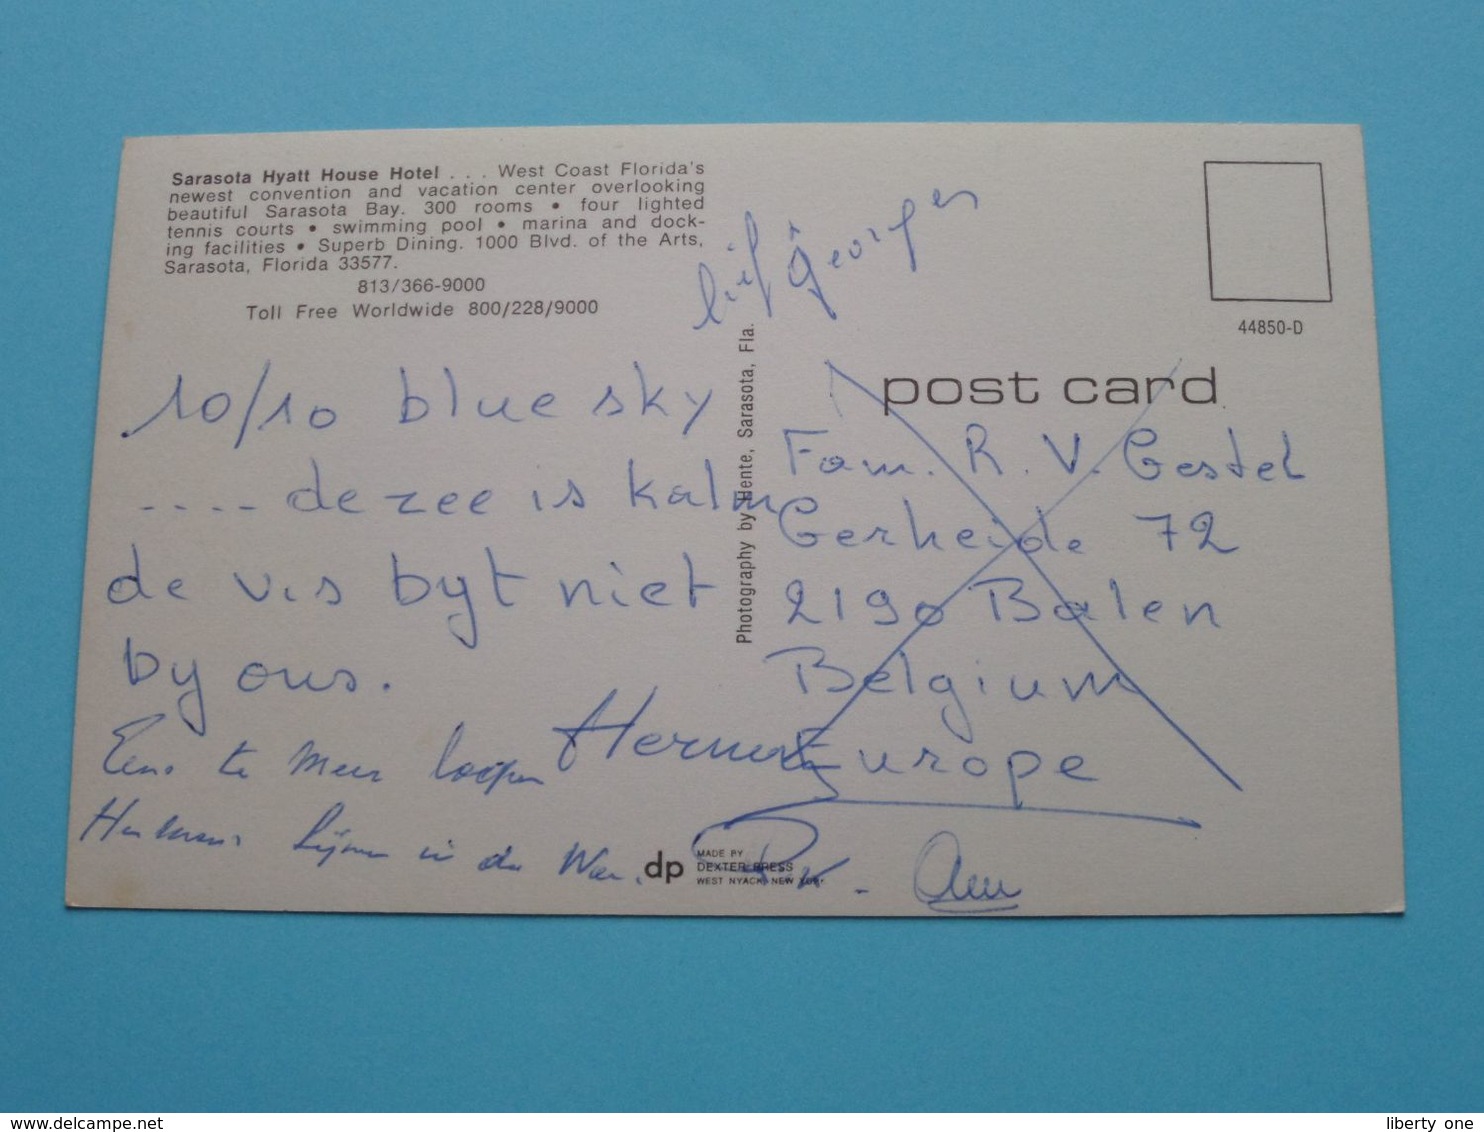 Sarasota Hyatt House Hotel . . . West Coast Florida's
newest convention and vacation center overlooking
beautiful Sarasota Bay. 300 rooms • four lighted
tennis courts • swimming pool • marina and dock-
ing facilities • Superb Dining. 1000 Blvd. of the Arts,
Sarasota, Florida 33577.
813/366-9000
Toll Free Worldwide 800/228/9000
10/10 blue sky
.... de zee is kalm
de vis byt niet
by ons.
Herman
te meer
in de
Photography by Hente, Sarasota, Fla.
dp
MADE BY
DEXTER PRESS
WEST NYACK, NEW YORK
44850-D
post card
Fam. R. V. Gestel
Gerheide 72
2190 Balen
Belgium
Europe
www.delcampe.net
liberty one